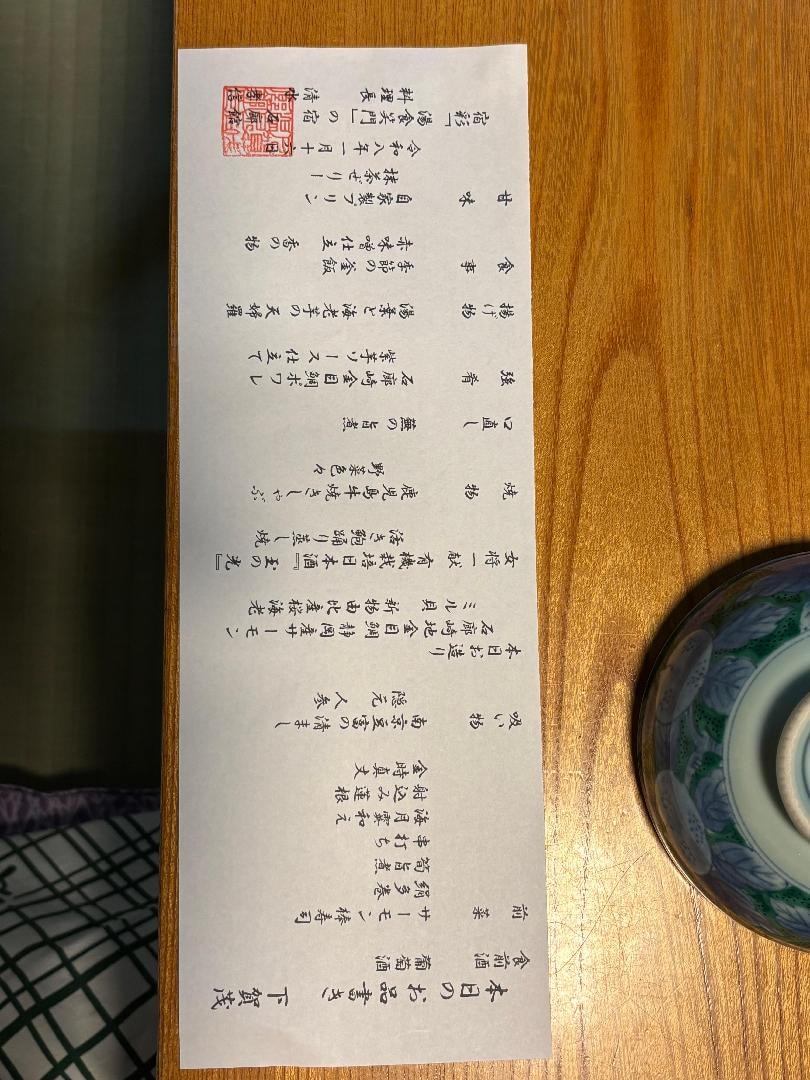 本日のお品書き 下賀茂
食前酒 葡萄酒
前菜 サーモン棒寿司
絹多巻
筍旨煮
串打ち
海月霙和え
射込み蓮根
金時真丈
吸い物 南京豆富の清まし
隠元 人参
本日お造り
石廊崎地金目鯛 静岡産サーモン
ミル貝 新物由比産桜海老
女将一献 有機栽培日本酒『玉の光』
活き鮑踊り蒸し焼
焼物 鹿児島牛焼きしゃぶ
野菜色々
口直し 蕪の旨煮
強肴 石廊崎金目鯛ポワレ
紫芋ソース仕立て
揚げ物 湯葉と海老芋の天婦羅
食事 季節の釜飯
赤味噌仕立 香の物
甘味 自家製プリン
抹茶ぜりー
令和八年一月十六日
宿彩「湯食笑門」の宿
料理長 清水